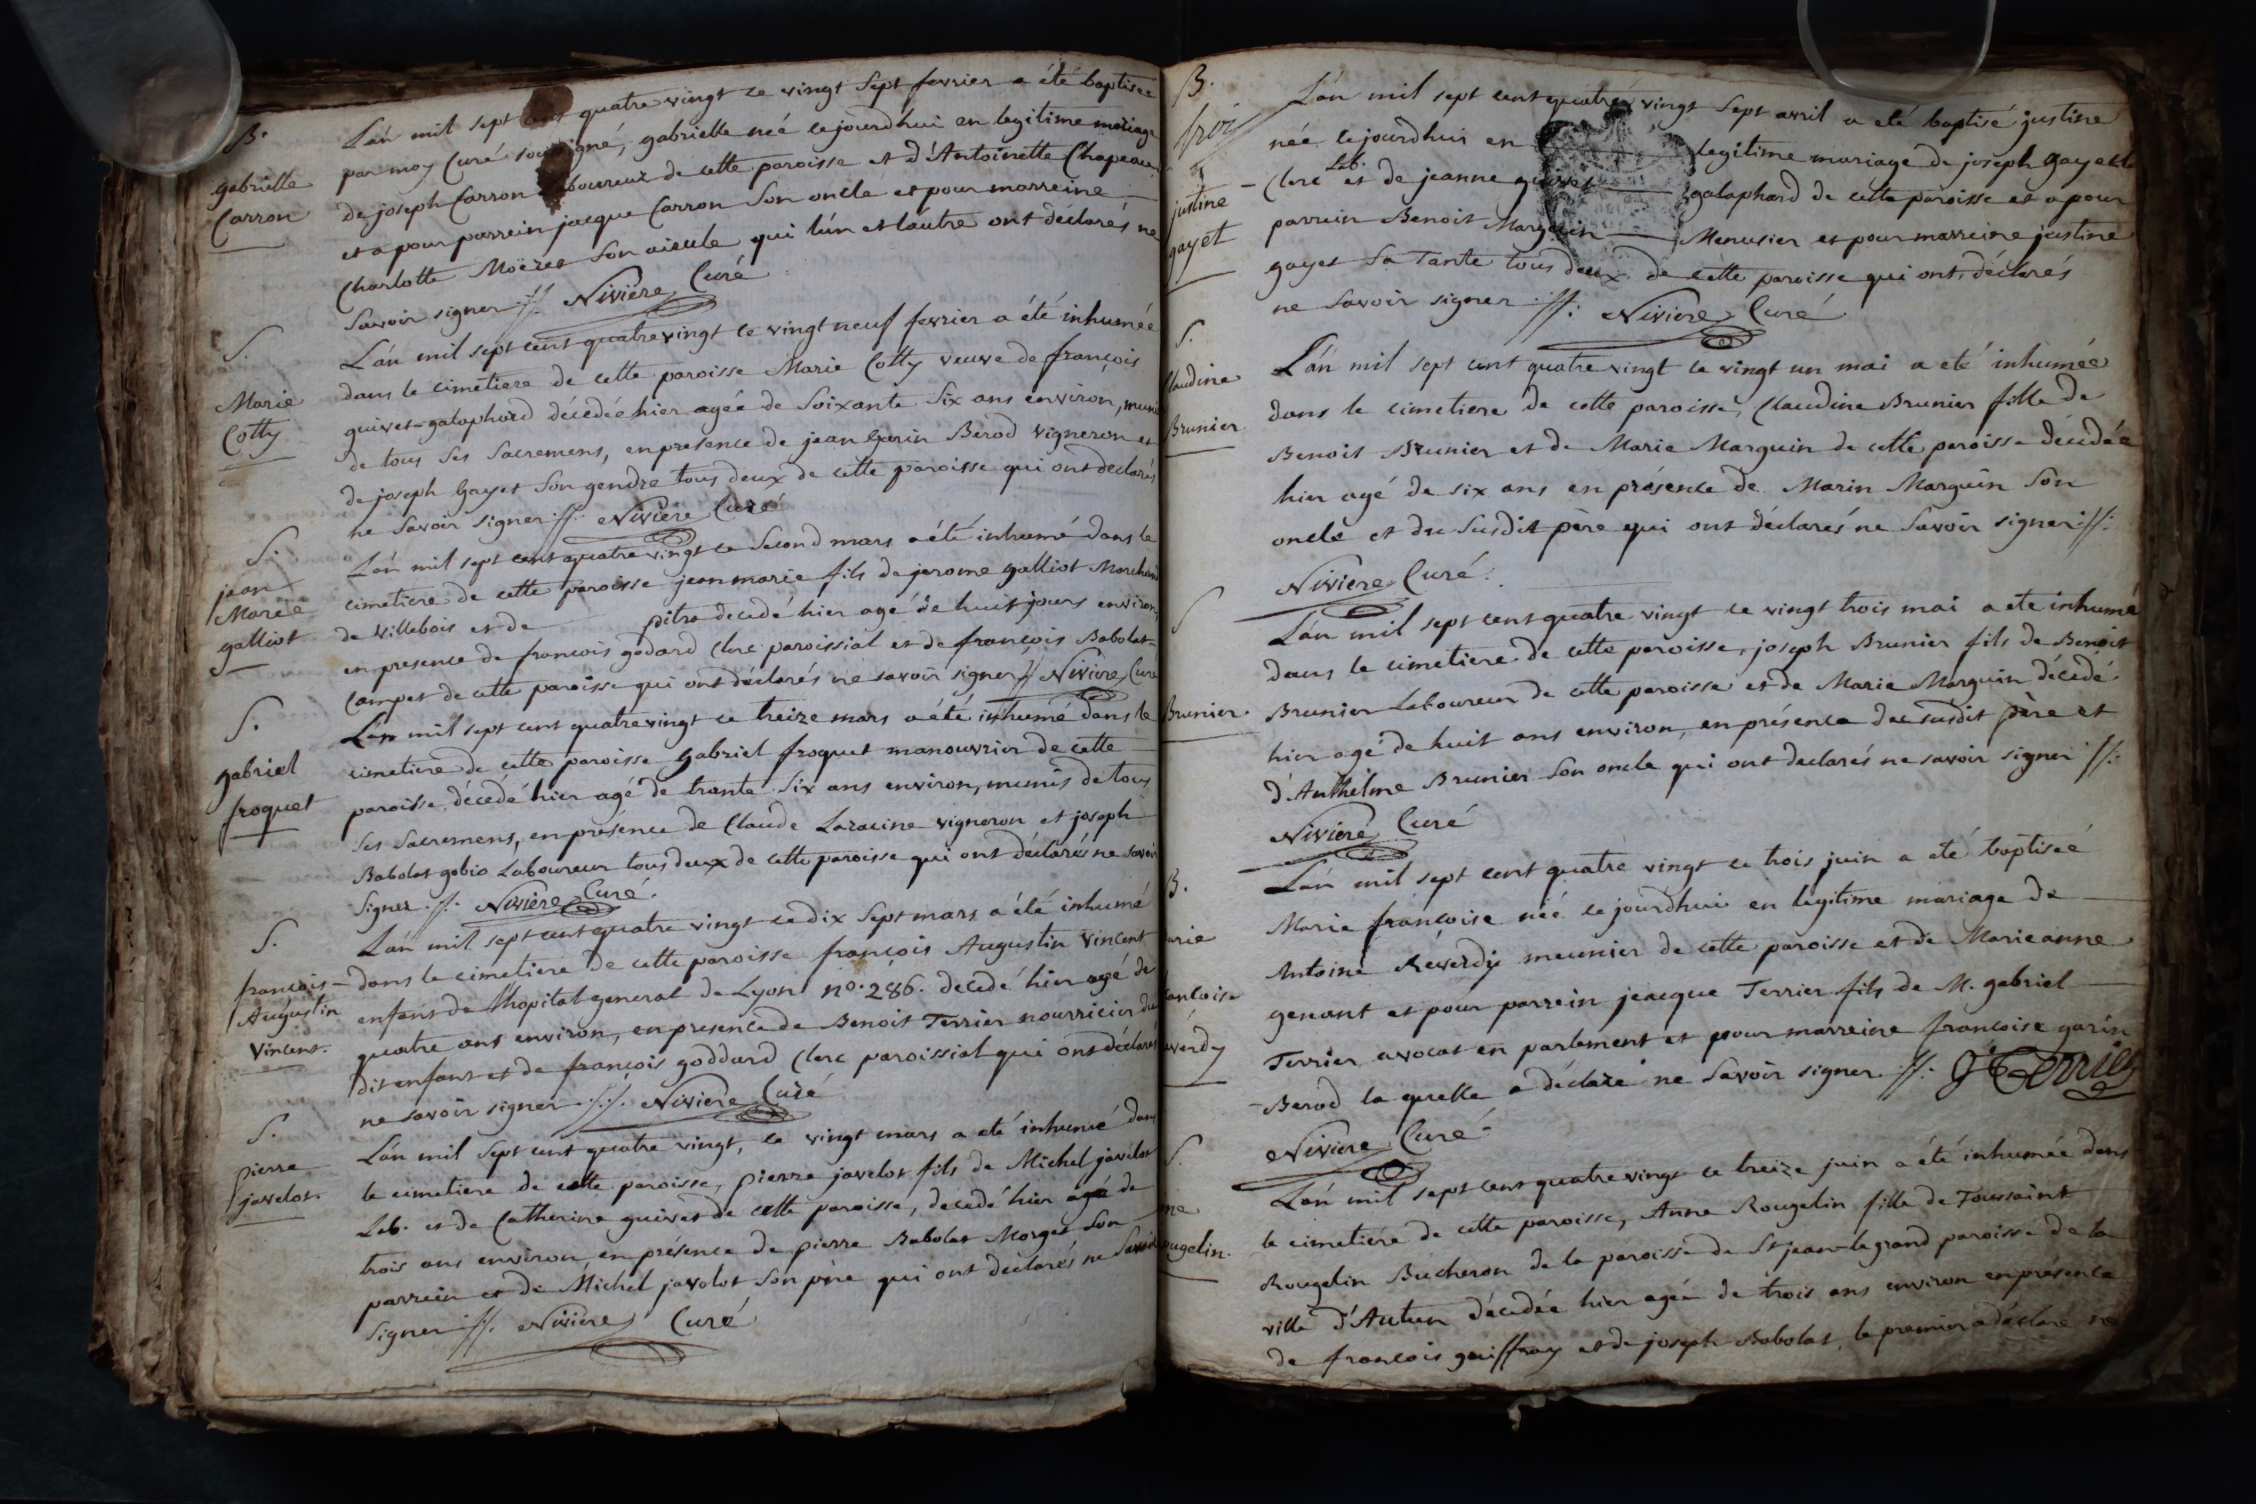 B.
gabrielle
Carron
L'an mil sept cent quatre vingt ce vingt sept fevrier a été baptisée
par moy Curé soussigné, gabrielle née cejourdhui en legitime mariage
de joseph Carron laboureur de cette paroisse et d'Antoinette Chapeau
et a pour parrein jacque Carron son oncle et pour marreine
Charlotte son aieule qui l'un et l'autre ont déclarés ne
savoir signer ://: Niviere Curé
S.
Marie
Cotty
L'an mil sept cent quatre vingt ce vingt neuf fevrier a été inhumée
dans le cimetiere de cette paroisse Marie Cotty veuve de françois
guivet-galaphard décedée hier agée de soixante six ans environ, munie
de tous ses sacremens, en presence de jean Garin Berod vigneron et
de joseph gayet son gendre tous deux de cette paroisse qui ont declarés
ne savoir signer ://: Niviere Curé
S.
jean
Marie
galliot
L'an mil sept cent quatre vingt ce second mars a été inhumé dans le
cimetiere de cette paroisse jean marie fils de jerome galliot Marchand
de villebois et de pitra decedé hier agé de huit jours environ,
en presence de francois godard Clerc paroissial et de françois Babolat-
Campet de cette paroisse qui ont déclarés ne savoir signer // Niviere Curé
S.
gabriel
froquet
L'an mil sept cent quatre vingt ce treize mars a été inhumé dans le
cimetiere de cette paroisse gabriel froquet manouvrier de cette
paroisse, décedé hier agé de trante six ans environ, munis de tous
ses sacremens, en présence de Claude Laracine vigneron et joseph
Babolat gobio Laboureur tous deux de cette paroisse qui ont déclarés ne savoir
signer ://: Niviere Curé.
S.
françois-
Augustin
Vincent.
L'an mil sept cent quatre vingt ce dix sept mars a été inhumé
dans le cimetiere de cette paroisse françois Augustin Vincent
enfant de l'hopital general de Lyon no. 286. decedé hier agé de
quatre ans environ, en presence de Benoit Terrier nourricier du
dit enfant et de françois goddard Clerc paroissial qui ont déclarés
ne savoir signer ://: Niviere Curé
S.
pierre
javelot.
L'an mil sept cent quatre vingt, ce vingt mars a eté inhumé dans
le cimetiere de cette paroisse, pierre javelot fils de Michel javelot
Lab. et de Catherine guivet de cette paroisse, decedé hier agé de
trois ans environ, en présence de pierre Babolat Morget son
parrein et de Michel javelot son père qui ont déclarés ne savoir
signer ://: Niviere Curé
B.
justine
gayet
L'an mil sept cent quatre vingt sept avril a eté baptisé justine
née cejourdhui en legitime mariage de joseph gayet
Clerc Lab. et de jeanne guivet galaphard de cette paroisse et a pour
parrein Benoit Margerin Menusier et pour marreine justine
gayet sa tante tous deux de cette paroisse qui ont déclarés
ne savoir signer ://: Niviere Curé
S.
Claudine
Brunier.
L'an mil sept cent quatre vingt ce vingt un mai a eté inhumée
dans le cimetiere de cette paroisse, Claudine Brunier fille de
Benoit Brunier et de Marie Marguin de cette paroisse decedée
hier agé de six ans en présence de Marin Marguin son
oncle et du susdit père qui ont déclarés ne savoir signer ://:
Niviere Curé.
S
Brunier.
L'an mil sept cent quatre vingt ce vingt trois mai a ete inhumé
dans le cimetiere de cette paroisse, joseph Brunier fils de Benoit
Brunier Laboureur de cette paroisse et de Marie Marguin décedé
hier agé de huit ans environ, en présence du susdit père et
d'Anthelme Brunier son oncle qui ont declarés ne savoir signer ://:
Niviere Curé
B.
arie
ancoise
everdy
L'an mil sept cent quatre vingt ce trois juin a eté baptiseé
Marie françoise née ce jourdhui en legitime mariage de
Antoine Reverdy meunier de cette paroisse et de Marieanne
genant et pour parrein jeacque Terrier fils de M. gabriel
Terrier avocat en parlement et pour marreine francoise garin
-Berod la quelle a déclaré ne savoir signer ://: J Terrier
Niviere Curé
S.
ne
ougelin.
L'an mil sept cent quatre vingt ce treize juin a été inhumée dans
le cimetiére de cette paroisse, Anne Rougelin fille de Toussaint
Rougelin Bucheron de la paroisse de St jean-le grand paroisse de la
ville d'Autun décedée hier agée de trois ans environ en presence
de francois guiffray et de joseph Babolat, le premier a déclaré ne